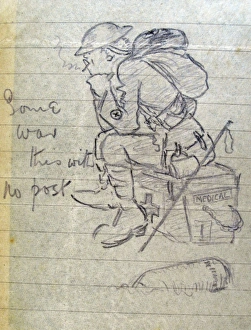 Some
war
this with
no post
MEDICAL